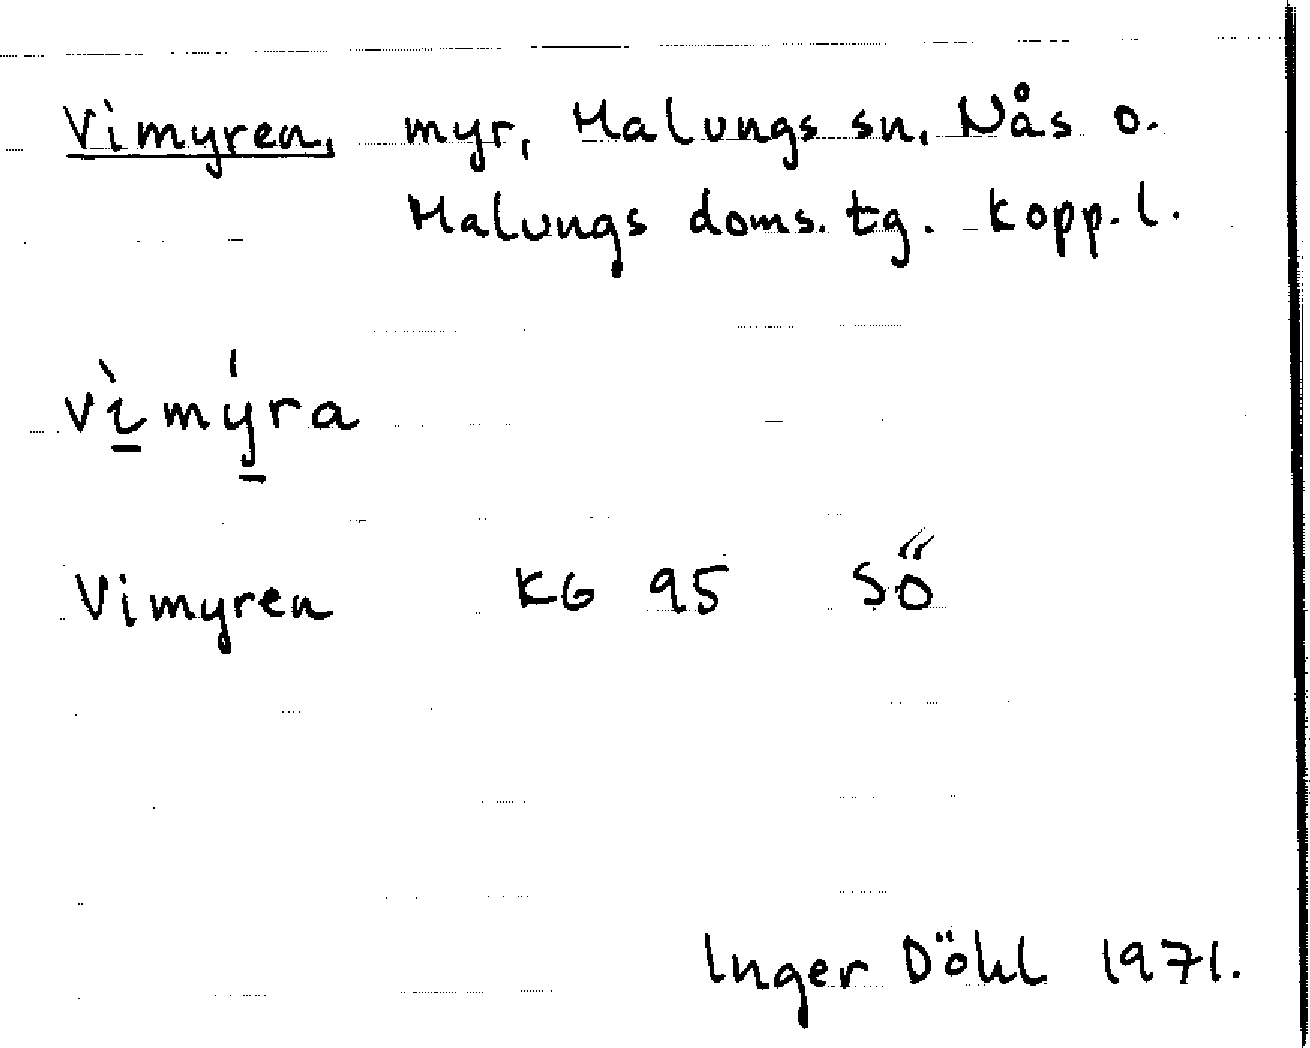 Vimyren, myr, Malungs sn. Nås o.
Malungs doms. tg. Kopp. l.
vìmýra
Vimyren KG 95 SÖ
Inger Döhl 1971.